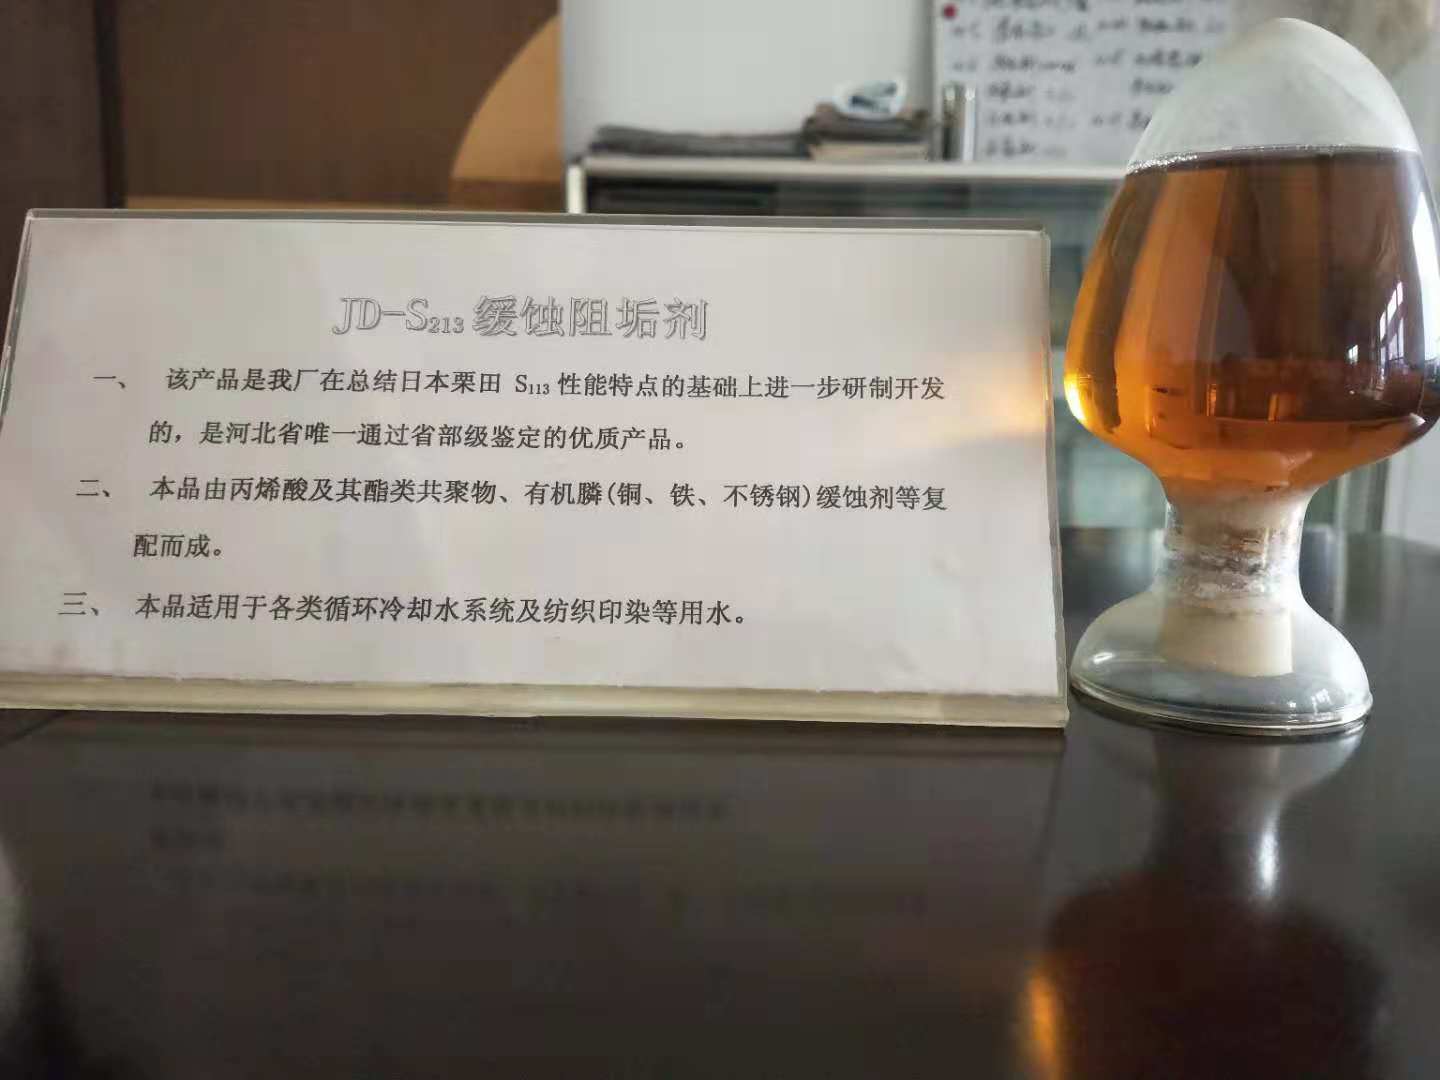 JD-S₂₁₃缓蚀阻垢剂
一、 该产品是我厂在总结日本栗田 S₁₁₃ 性能特点的基础上进一步研制开发
的，是河北省唯一通过省部级鉴定的优质产品。
二、 本品由丙烯酸及其酯类共聚物、有机膦(铜、铁、不锈钢)缓蚀剂等复
配而成。
三、 本品适用于各类循环冷却水系统及纺织印染等用水。